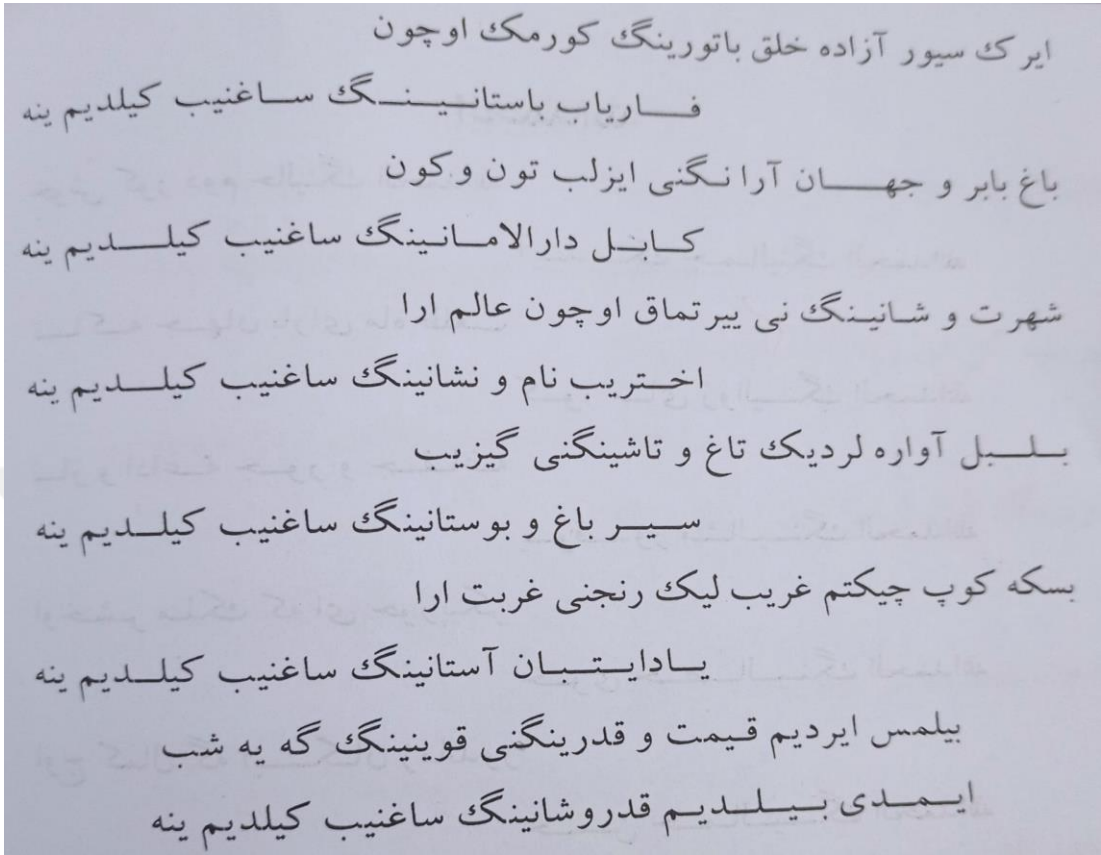 ایرک سیور آزاده خلق باتورینگ کورمک اوچون
فاریاب باستانینگ ساغنیب کیلدیم ینه
باغ بابر و جهان آرانگنی ایزلب تون و کون
کابل دارالامانینگ ساغنیب کیلدیم ینه
شهرت و شانینگ نی ییرتماق اوچون عالم ارا
اختریب نام و نشانینگ ساغنیب کیلدیم ینه
بلبل آواره لردیک تاغ و تاشینگنی گیزیب
سیر باغ و بوستانینگ ساغنیب کیلدیم ینه
بسکه کوپ چیکتم غریب لیک رنجنی غربت ارا
یادایتبان آستانینگ ساغنیب کیلدیم ینه
بیلمس ایردیم قیمت و قدرینگنی قوینینگ گه یه شب
ایمدی بیلدیم قدروشانینگ ساغنیب کیلدیم ینه